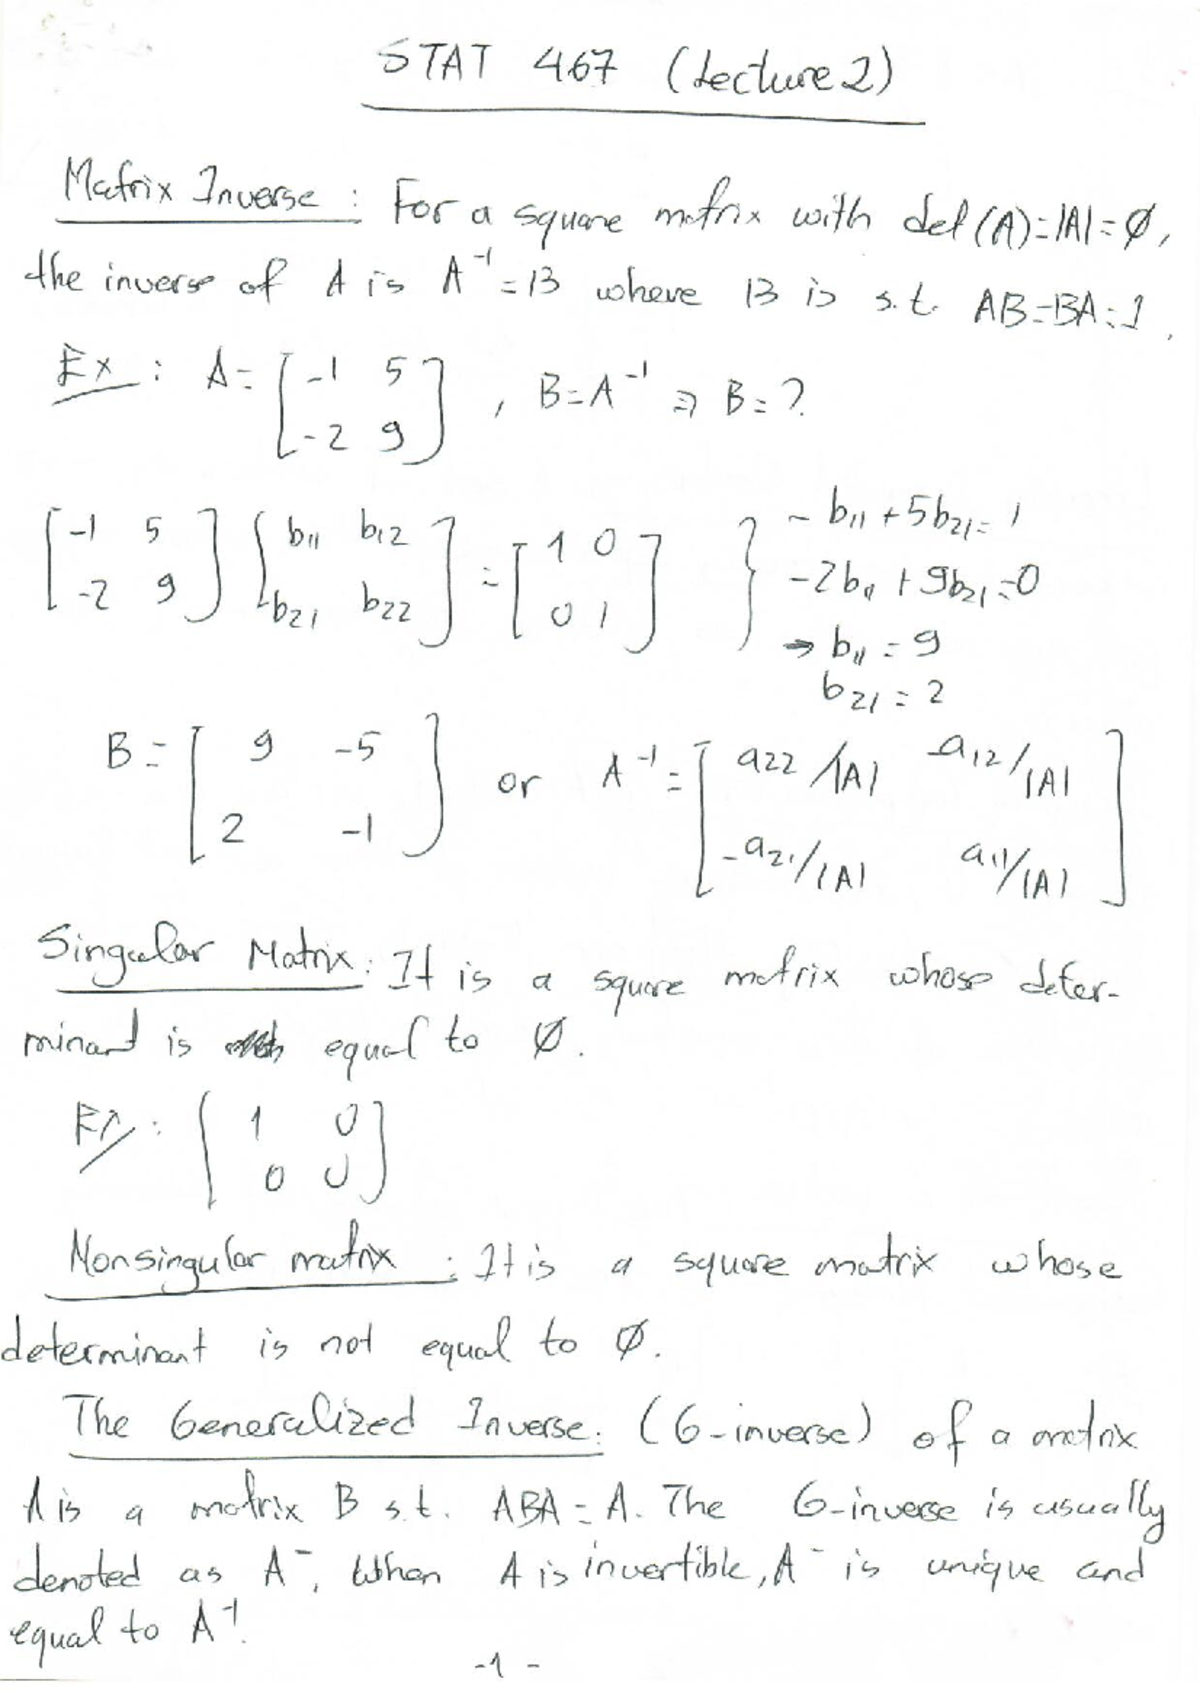 STAT 467 (Lecture 2)
Matrix Inverse : For a square matrix with det(A)=|A|=Ø,
the inverse of A is A⁻¹=B where B is s.t. AB=BA=I.
Ex : A=[-1 5
-2 9] , B=A⁻¹ ⇒ B=?
[-1 5
-2 9] [b11 b12
b21 b22] = [1 0
0 1] } -b11+5b21=1
-2b11+9b21=0
→ b11=9
b21=2
B=[9 -5
2 -1] or A⁻¹=[a22/|A| -a12/|A|
-a21/|A| a11/|A|]
Singular Matrix : It is a square matrix whose deter-
minant is equal to Ø.
Ex : [1 0
0 0]
Nonsingular matrix : It is a square matrix whose
determinant is not equal to Ø.
The Generalized Inverse: (G-inverse) of a matrix
A is a matrix B s.t. ABA=A. The G-inverse is usually
denoted as A⁻. When A is invertible, A⁻ is unique and
equal to A⁻¹.
-1-